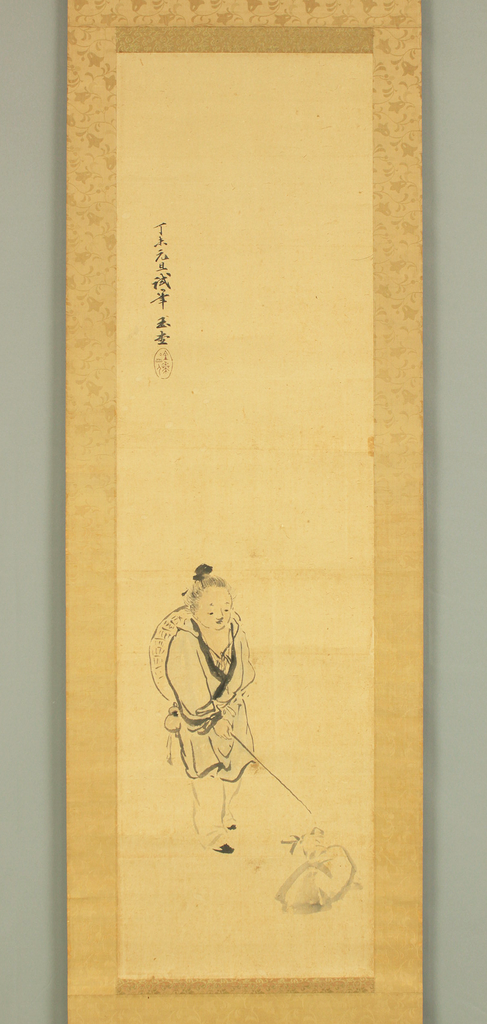 丁未元旦試筆 玉壺